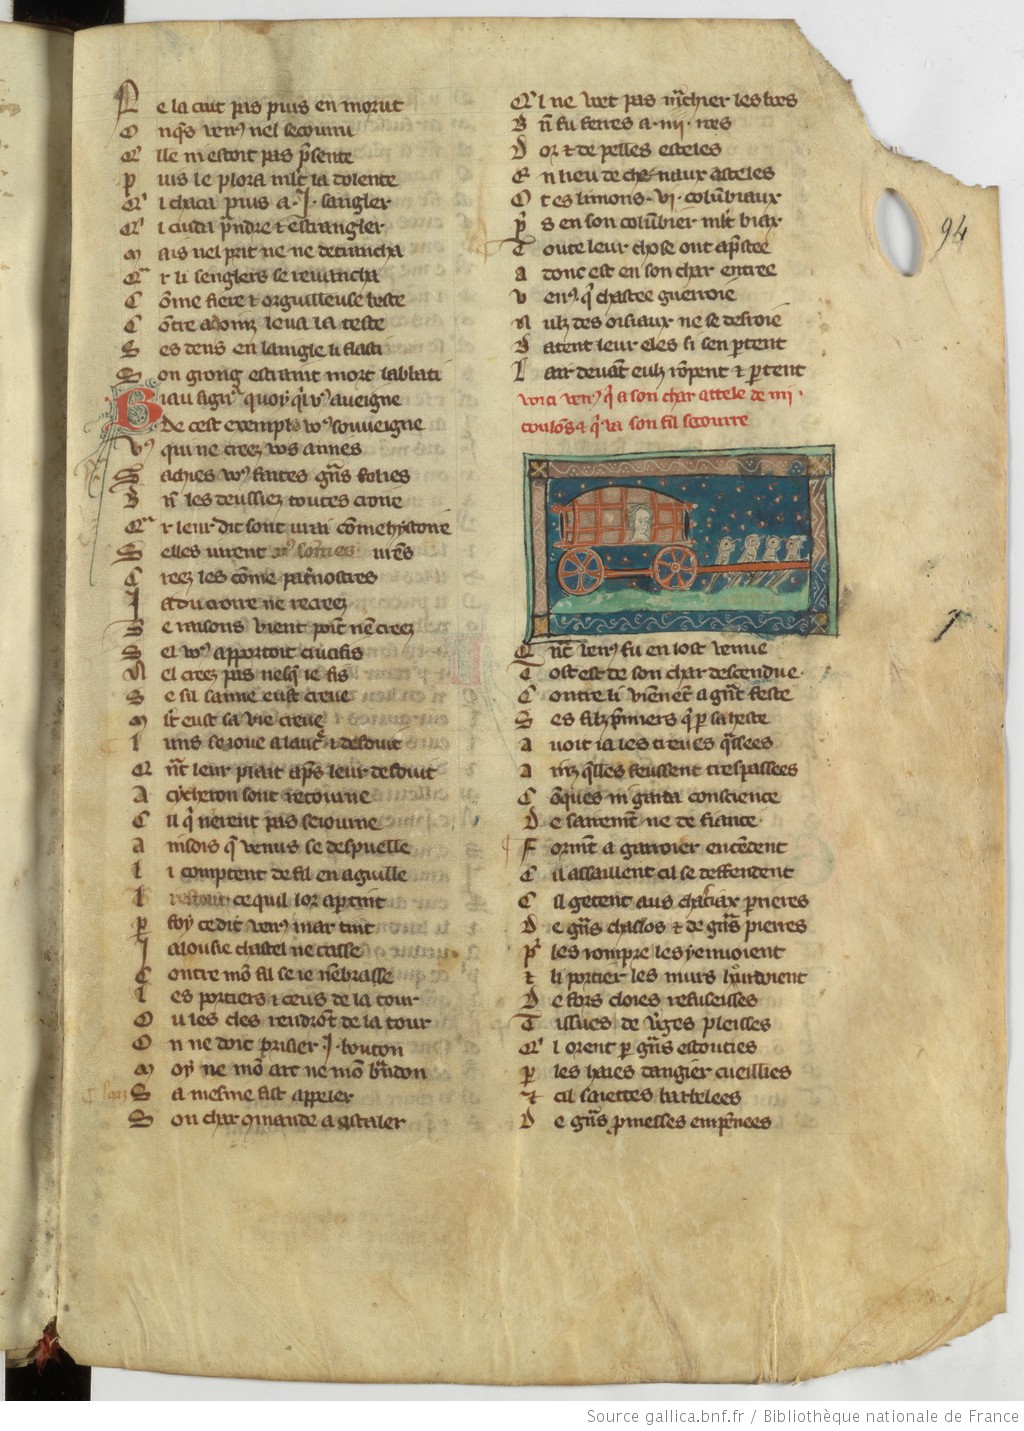 Ne la cuit pas puis en morut
Onq̃s venꝰ nel secouru
Elle niestoit pas p̃sente
Puis le plora mlt la dolente
Qi chaca puis a .I. sangler
Qi cuida p̃ndre & estrangler
Mais nel prit ne ne detrancha
Qr li senglers se revancha
Cõme fiere & orguilleuse beste
Cõtre adoniz leva la teste
Ses dens en laingle li flasti
Son groing estraint mort labbati
Biau sygnꝰ quoy q̃ vꝰ aveigne
De cest exemple vꝰ souveigne
Vꝰ qui ne creez vos amies
Sachies vꝰ faites gñs folies
Bñ les deussiez toutes croire
Qr leur dit sont vrai cõme hystoire
Selles iurent
Creez les cõme patnostres
Ja du croire ne recreez
Se raisons vient point nẽ creez
Sel vꝰ apportoit crucefis
Nel creez pas nesq̃ ie fis
Se sil samie eust creue
Mlt eust sa vie creue
Luns se ioue a lautr̃ & deduit
Qñt leur plait ap̃s leur deduit
A cytheron sont retourne
Cil q̃ nerent pas seiourne
Ainsois q̃ venus se despuelle
Li comptent de fil en aguille
L ce quil lor apartint
P foy ce dit venꝰ mar tint
Jalousie chastel ne casse
Contre mõ fil se ie nẽbrasse
Les portiers & ceus de la tour
Ou les cles rendrõt de la tour
On ne doit prisier .I. bouton
Moy ne mõ arc ne mõ brãdon
Sa mesnie fist appeler
Son char 9mande a 9staler
Ql ne voet pas mchier les boes
Bñ fu ferres a .IIII. roes
Dor & de pelles esteles
En lieu de chevaux asteles
Ot es limons .VI. colũbiaux
Pris en son colũbier mlt biax
Toute leur chose ont aprstee
Adonc est en son char entree
Venꝰ q̃ chastee guerroie
Nulz des oisiaux ne se desroie
Batent leur eles si sen ptent
Lair devãt eulz rõpent & ptent
Voici venꝰ q̃ a son char attele de IIII.
coulõs & q̃ va son fil secourre
Qñt venꝰ fu en lost venue
Tost est de son char descendue
Contre li viẽnẽt a gñt feste
Ses filz p̃miers q̃ p sa heste
Avoit ia les trieues q̃ssees
Ainz q̃lles feussent trespassees
Cõques ni garda conscience
De sairemẽt ne de fiance
Formẽt a gerroier encẽdent
Cil assaillent cil se deffendent
Cil getent aus chatiax prrieres
De gñs chaillos & de gñs pierres
Pr les rompre les y envoient
& li portier les murs hourdoient
De fors cloies refuseisses
Tissues de vges pleisses
Ql orent p gñs estouties
P les haies dangier cueillies
& cil saiettes barbelees
De gñs pmesses empẽnees
94
Source gallica.bnf.fr / Bibliothèque nationale de France